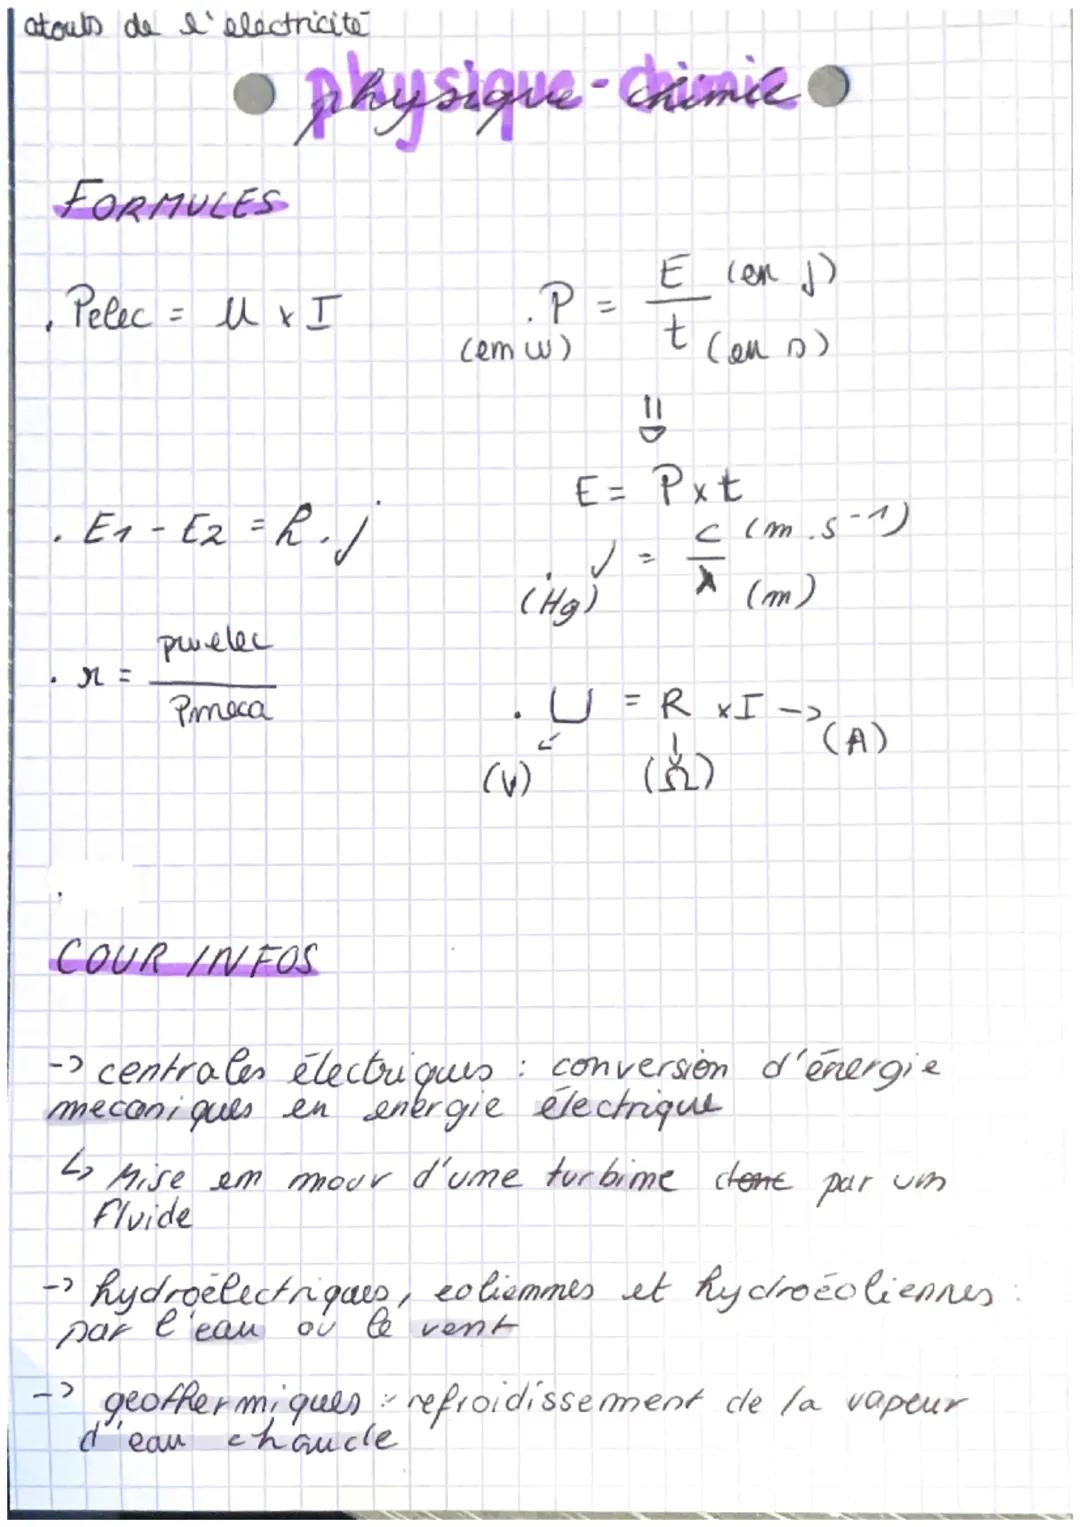 atouts de l'électricité
physique-chimie
FORMULES
. Pelec = U x I
. P = E (en j)
(em w) t (en s)
⇓
E = P x t
. E1 - E2 = h . j
. √ = c (m.s⁻¹)
(Hg) λ (m)
. r = pwelec
Pmeca
. U = R x I -> (A)
(V) (Ω)
.
COUR INFOS
-> centrales électriques : conversion d'énergie
mecaniques en energie électrique
↳ Mise em mouv d'ume turbime dont par um
fluide
-> hydroélectriques, eoliemmes et hydroéoliennes :
par l'eau ou le vent
-> geothermiques : refroidissement de la vapeur
d'eau chaude